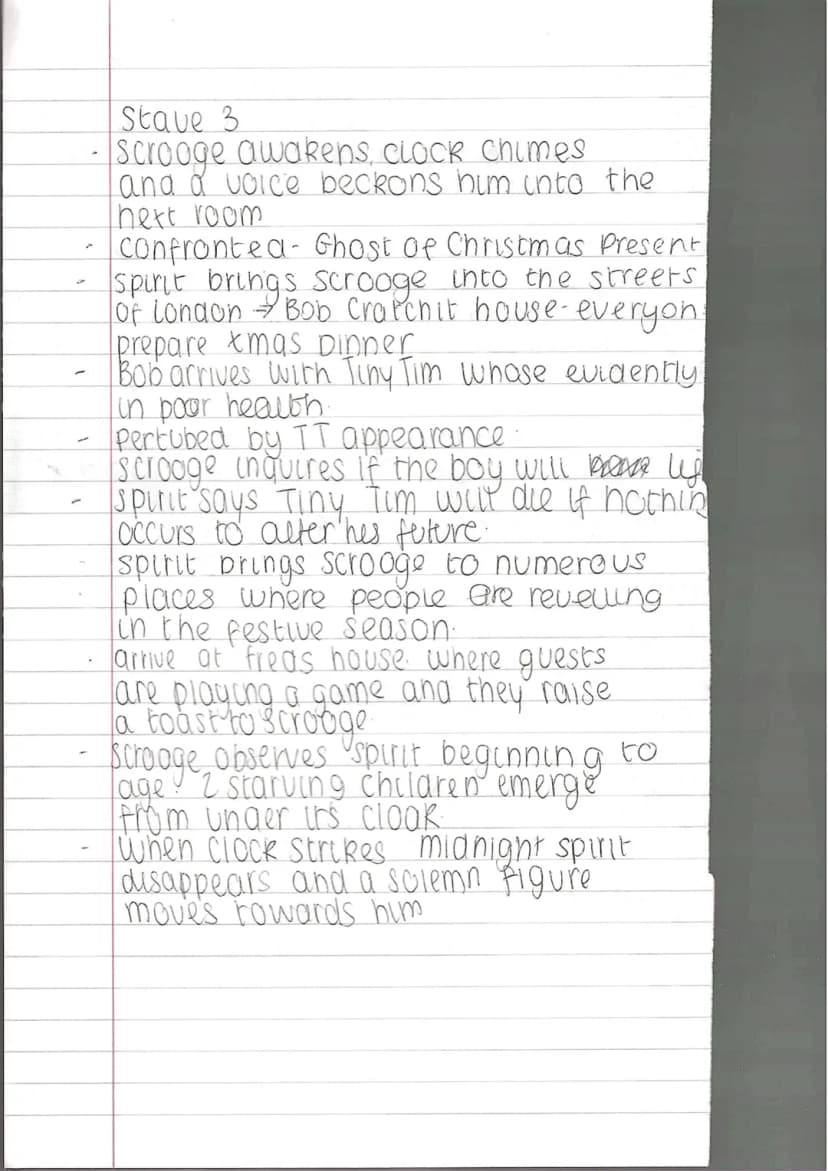 Stave 3
- Scrooge awakens, clock chimes
and a voice beckons him into the
next room
- confronted - Ghost of Christmas Present
- spirit brings scrooge into the streets
of London → Bob Cratchit house - everyon
prepare xmas Dinner
- Bob arrives with Tiny Tim whose evidently
in poor health.
- pertubed by TT appearance.
scrooge inquires if the boy will
- spirit says Tiny Tim will die if nothin
occurs to alter hes future.
- spirit brings scrooge to numerous
places where people are revelling
in the festive season.
- arrive at freds house where guests
are playing a game and they raise
a toast to scrooge
- scrooge observes spirit beginning to
age. 2 starving children emerge
from under its cloak.
- when clock strikes midnight spirit
disappears and a solemn figure
moves towards him